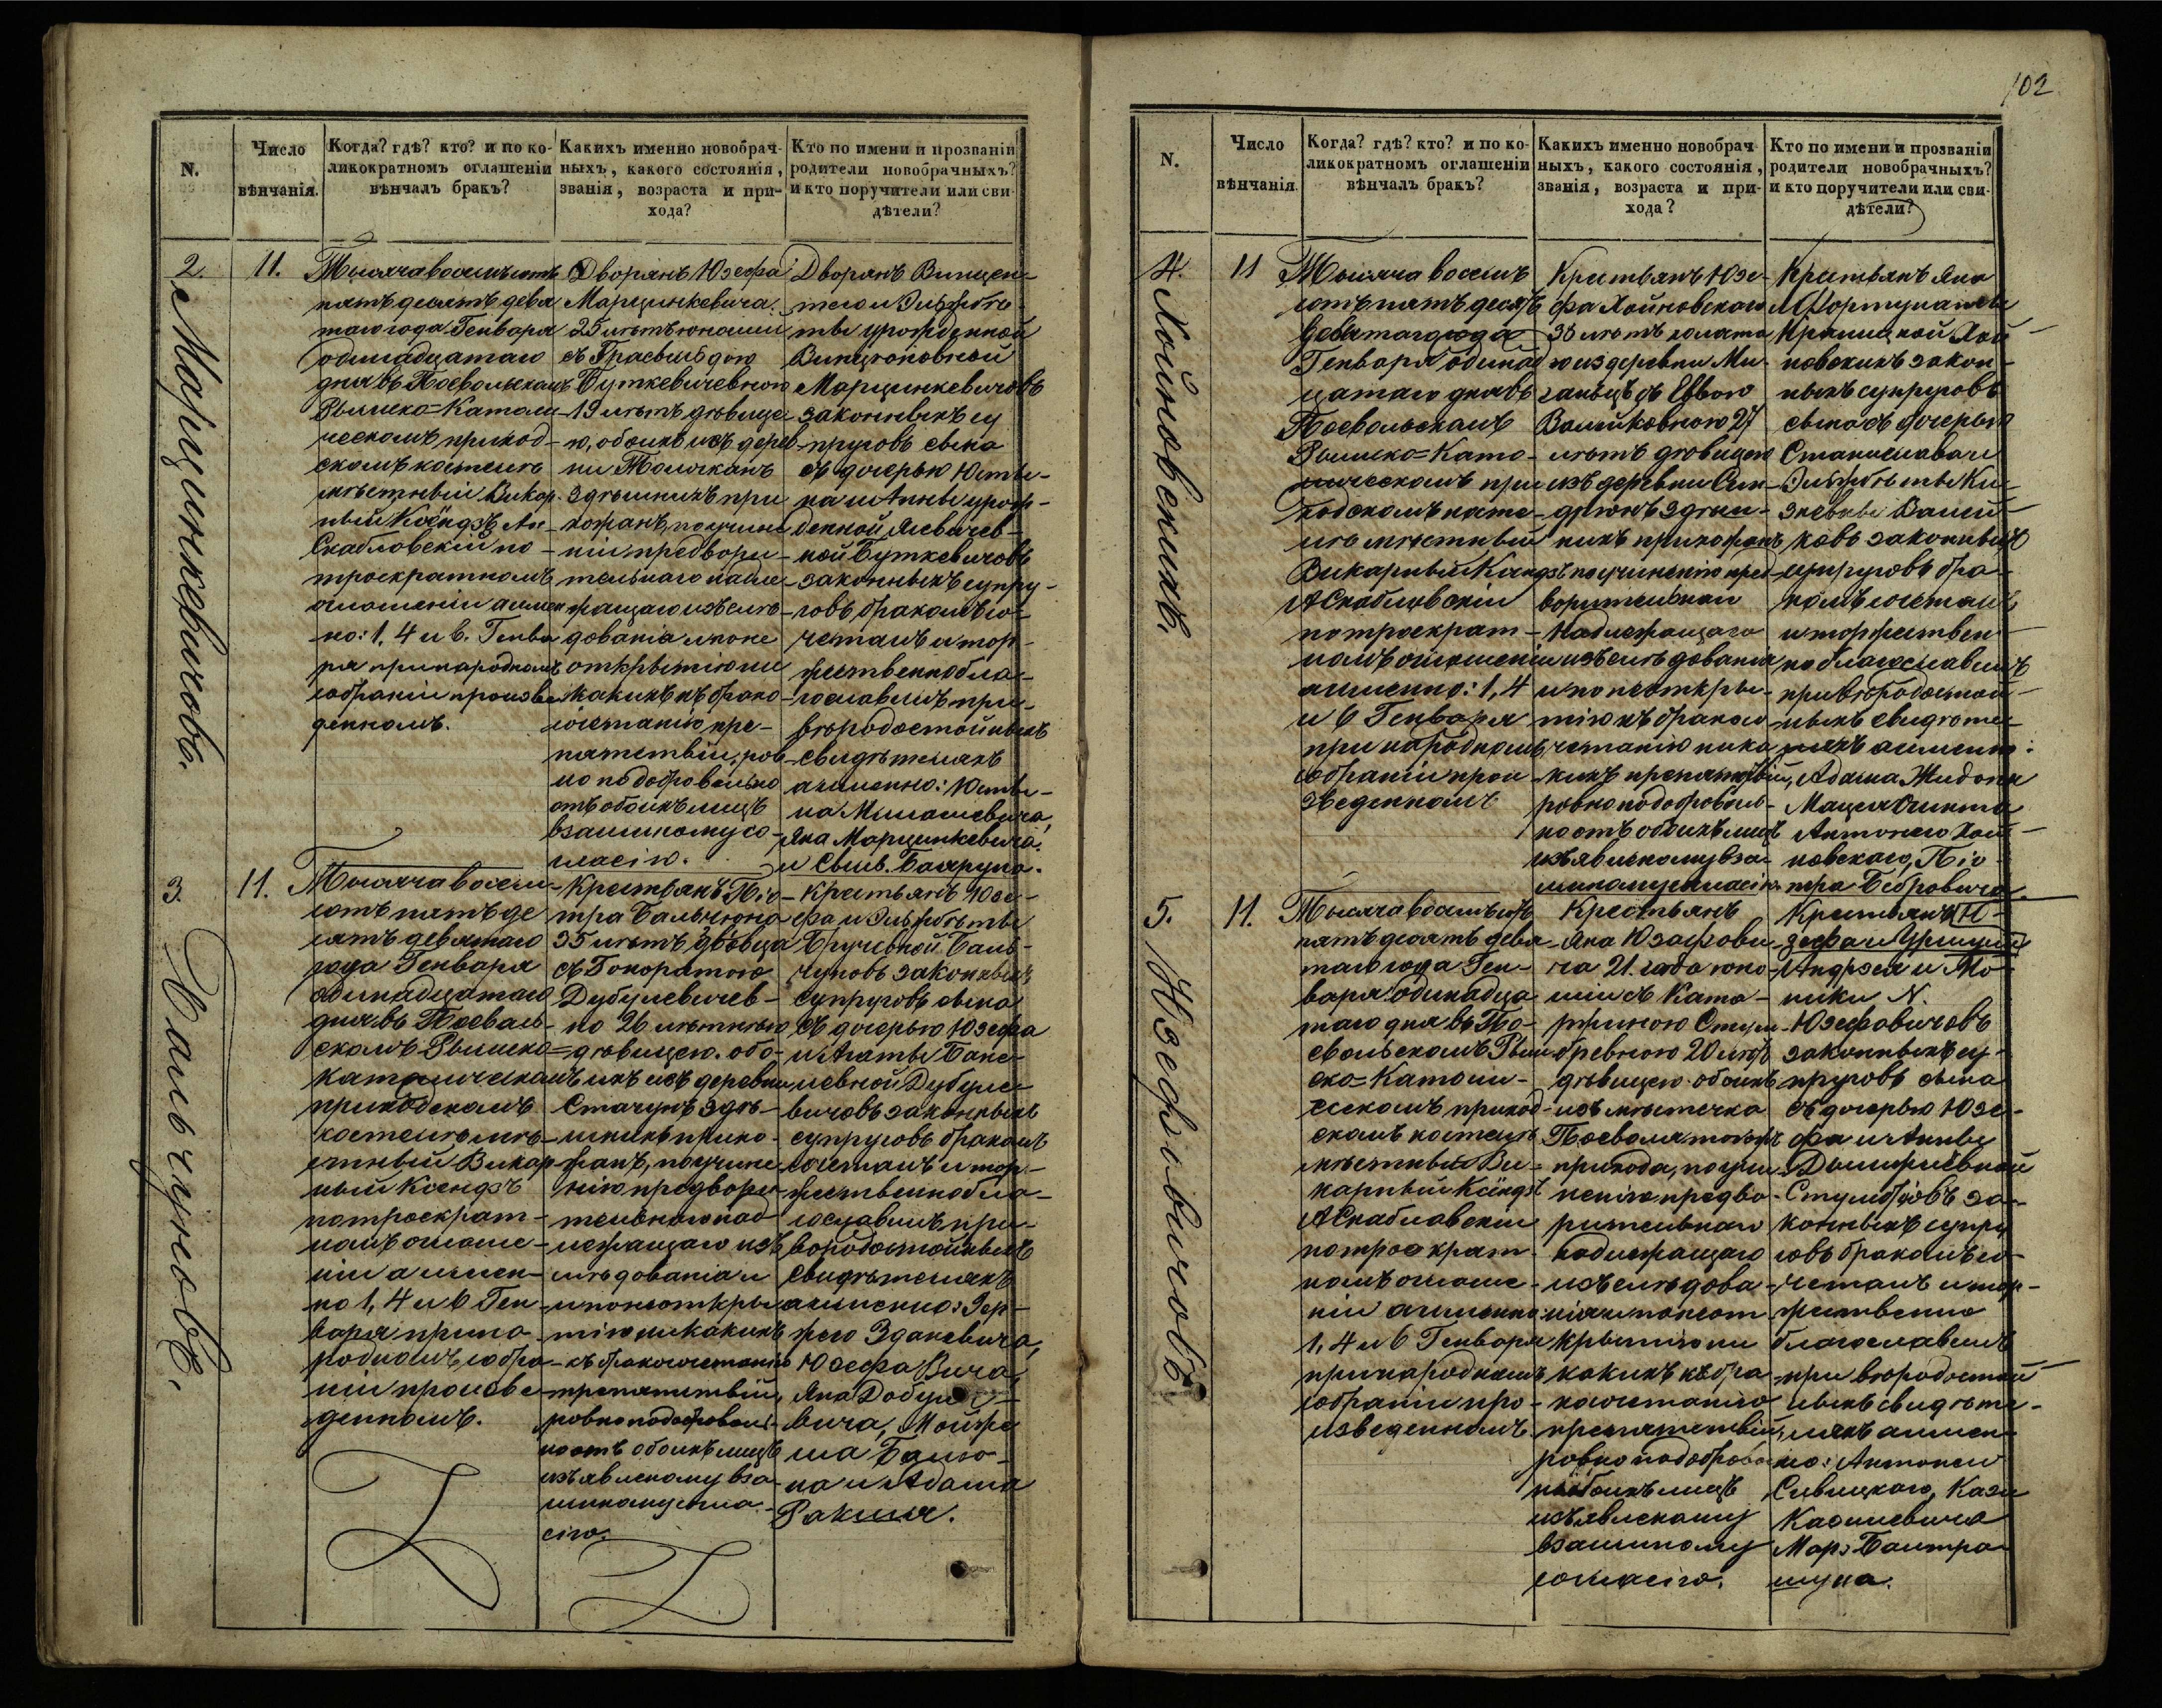 N.
Число
вѣнчанія.
Когда? гдѣ? кто? и по ко-
ликократномъ оглашеніи
вѣнчалъ бракъ?
Какихъ именно новобрач-
ныхъ, какого состоянія,
званія, возраста и при-
хода?
Кто по имени и прозванію
родители новобрачныхъ?
и кто поручители или сви-
дѣтели?
2.
Марцинкевичовъ.
11.
Тысяча восемьсотъ
пятьдесятъ девя
таго года Генваря
одинадцатаго
дня въ Посвольскомъ
Рымско=Католи
ческомъ приход-
скомъ костелѣ
мѣстный Викар
ный Ксёндзъ Ан
Скабловскій по
троекратномъ
оглошеніи аимен
но: 1, 4 и 6. Генва
ря принародномъ
собраніи произве
денномъ.
Дворянъ Юзефа
Марцинкевича
25 лѣтъ юношии
съ
Буткевичевною
19 лѣтъ дѣвице
ю, обоихъ изъ дерев
ни Толючканъ
здѣшнихъ при
хожанъ, поучине
ніи предвори
тельнаго надле
жащаго изслѣ
дованія и поне
открытію ни
какихъ къ брако
сочетанію пре-
пятствій, ров
но по доброволно
отъ обоихъ лицъ
взаимному со-
гласію.
Дворянъ Винцен-
тего и Эльжбѣ-
ты урожденной
Винцюновной
Марцинкевичовъ
законныхъ су
пруговъ сына
съ дочерью Юсты-
на и Анны урож-
денной
ной Буткевичовъ
законныхъ супру-
говъ бракомъ со-
четалъ и тор-
жественно бла-
гославилъ при-
вѣродостойныхъ
свидѣтеляхъ
аименно: Юсты-
на
Яна Марцинкевича
и Сыльв. Балруна.
3.
Бальчуновъ.
11.
Тысяча восем-
сотъ пятъде
сятъ девятаго
года Генваря
одинадцатаго
дня въ Посволь-
скомъ Рымско=
католическомъ
приходскомъ
костелѣ мѣ-
стный Викар
ный Ксендзъ
по троекрат-
номъ оглаше-
ніи аимен-
но 1, 4 и 6 Ген
варя прина
родномъ собра-
ніи произве
денномъ.
Крестьянъ Піо-
тра Бальчюна
35 лѣтъ вдовца
съ Гоноратою
Дубулевичев-
но 26 лѣтнею
дѣвицею. обо-
ихъ изъ деревни
Стачунъ здѣ-
шнихъ прихо-
жанъ, поучине
нію предвори
тельнаго над
лежащаго изъ
лѣдованія и
и понеоткры
тію никакихъ
къ бракосочетанію
препятствій,
ровно по доброволь-
но отъ обоихъ лицъ
изъявленому вза
имному согла-
сію.
Крестьянъ Юзе-
фа и Эльжбѣты
Бручевной Баль-
чуновъ законныхъ
супруговъ сына
съ дочерью Юзефа
и Агаты
Дубуле
вичовъ законныхъ
супруговъ бракомъ
сочеталъ и тор-
жественно бла-
гославилъ при-
вѣродостойныхъ
свидѣтеляхъ
аименно:
Зданевича,
Юзефа
Яна Добуле
вича,
на и Адама
102
N.
Число
вѣнчанія.
Когда? гдѣ? кто? и по ко-
ликократномъ оглашеніи
вѣнчалъ бракъ?
Какихъ именно новобрач
ныхъ, какого состоянія,
званія, возраста и при-
хода?
Кто по имени и прозванію
родители новобрачныхъ?
и кто поручители или сви-
дѣтели?
4.
Хойновскихъ.
11
Тысяча восемъ
сотъ пятъ десятъ
девятаго года
Генваря одинад
цатаго дня въ
Посвольскомъ
Рымско=Като-
лическомъ при
ходскомъ косте-
лѣ мѣстный
Викарный Ксендзъ
А Скабловскіи
по троекрат-
номъ оглошеніи
аименно: 1, 4
и 6 Генваря
при народномъ
собраніи прои
зведенномъ
Крестьянъ Юзе-
фа Хойновскаго
35 лѣтъ холоста
го из деревни Ми
ганцъ съ Еввою
Валейковною 27
лѣтъ дѣвицею
изъ деревни
здѣш-
нихъ прихожанъ
поучиненію пред
ворительнаго
Надлежащаго
изъслѣдованія
и по неоткры-
тію къ бракосо
четанію ника
кихъ препятствій,
ровно по доброволь-
но отъ обоихъ лицъ
изъявленому вза-
имному согласію.
Крестьянъ Яна
и Фортунаты
Хой
новскихъ закон-
ныхъ супруговъ
сына съ дочерью
Станислава и
Эльжбѣты
Валей
ковъ законныхъ
супруговъ бра-
комъ сочеталъ
и торжествен-
но благославилъ
при вѣродостой-
ныхъ свидѣте
ляхъ аименно:
Адама Жидоня
Мацея
Антонего Хой-
новскаго, Піо
тра Бебровича.
5.
Юзефовичовъ
11.
Тысяча восемьсотъ
пятьдесятъ девя
таго года Ген-
варя одинадца
таго дня въ По-
свольскомъ Рым
ско=Католи-
ческомъ приход-
скомъ костелѣ
мѣстный Ви-
карный Ксёндзъ
А Скабловскіи
по троекрат
номъ оглаше-
ніи аименно
1, 4 и 6 Генваря
принародномъ
собраніи про-
изведенномъ
Крестьянъ
Яна Юзафови
ча 21. года юно
ши съ Ката-
ржиною Стум
бревною 20 лѣтъ
дѣвицею. обоихъ
изъ мѣстечка
Посволя тогожъ
прихода, по учи
ненію предво-
рительнаго
надлежащаго
изъслѣдова-
нія и понеот
крытію ни
какихъ къ бра
косочетанію
препятствій,
ровно по доброво
обоихъ лицъ
изъявленому
взаимному
согласію.
Крестьянъ Ю-
зефа и Уршули
Андрея и Мо-
ники N.
Юзефовичовъ
законныхъ су-
пруговъ сына
съ дочерью Юзе-
фа и Анны
Стумбровъ за-
конныхъ супру
говъ бракомъ со-
четалъ и тор-
жественно
благославилъ
при вѣродостой
ныхъ свидѣте-
ляхъ аимен
но: Антонего
Сивицкаго, Кази
Касилевича
Мар: Балтра
шуна.